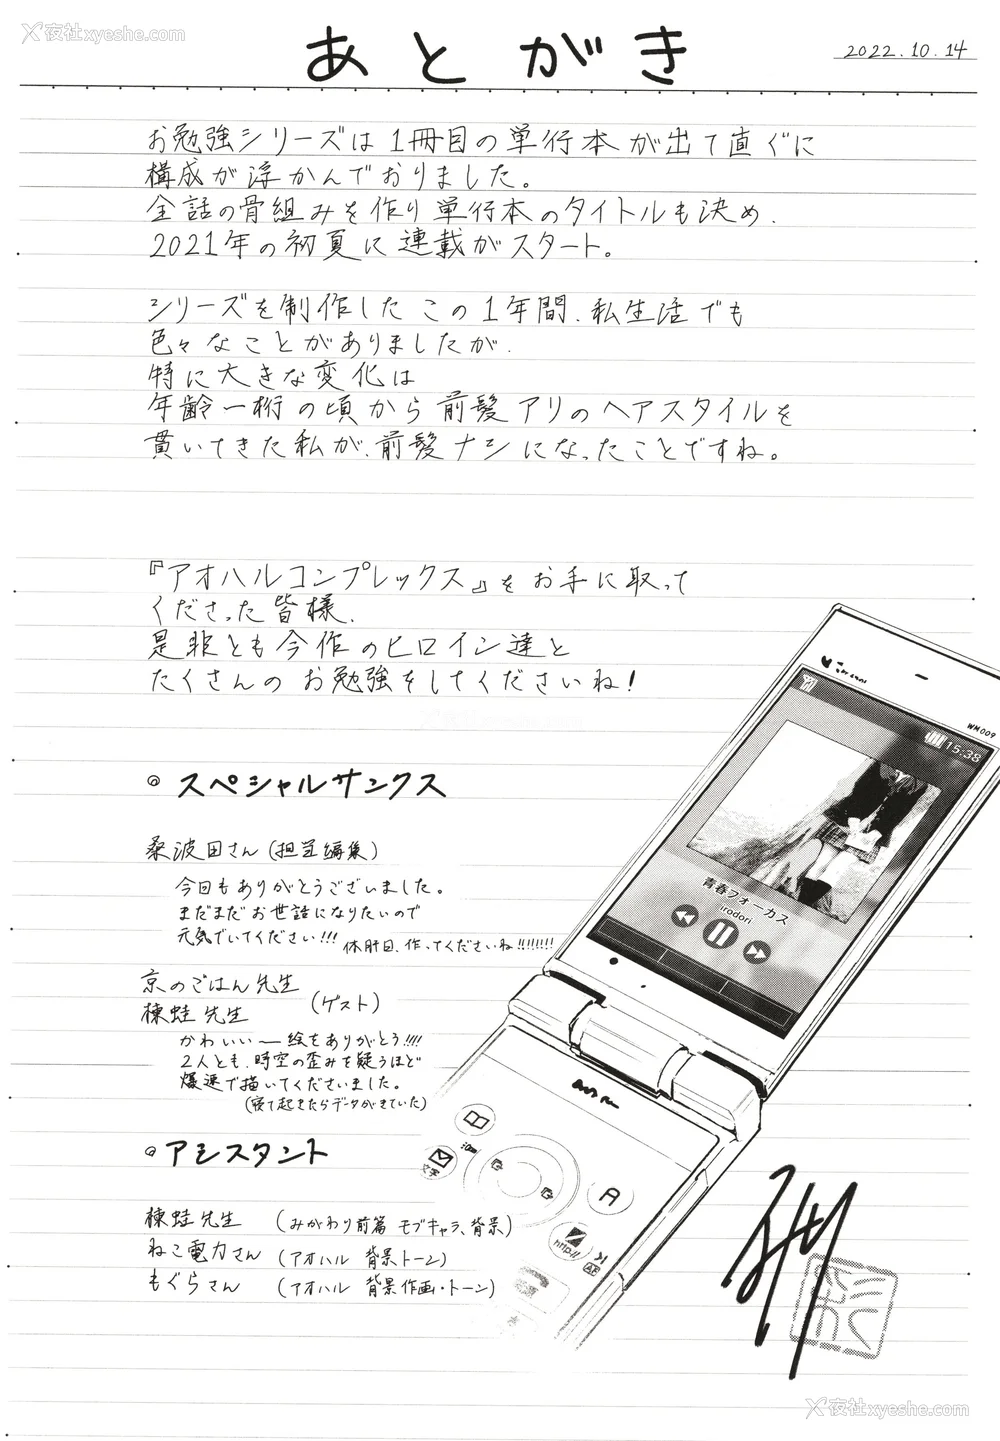 夜社xyeshe.com
あとがき
2022.10.14
お勉強シリーズは1冊目の単行本が出て直ぐに
構成が浮かんでおりました。
全話の骨組みを作り単行本のタイトルも決め、
2021年の初夏に連載がスタート。
シリーズを制作したこの1年間、私生活でも
色々なことがありましたが、
特に大きな変化は
年齢一桁の頃から前髪アリのヘアスタイルを
貫いてきた私が、前髪ナシになったことですね。
『アオハルコンプレックス』をお手に取って
くださった皆様、
是非とも今作のヒロイン達と
たくさんのお勉強をしてくださいね!
◎スペシャルサンクス
桑波田さん(担当編集)
今回もありがとうございました。
まだまだお世話になりたいので
元気でいてください!!! 休肝日、作ってくださいね!!!!!!!!
京のごはん先生
棟蛙先生 (ゲスト)
かわいい〜絵をありがとう!!!!
2人とも、時空の歪みを疑うほど
爆速で描いてくださいました。
(寝て起きたらデータがきていた)
◎アシスタント
棟蛙先生 (みがわり前篇 モブキャラ、背景)
ねこ電力さん (アオハル 背景トーン)
もぐらさん (アオハル 背景作画・トーン)
WM009
15:38
青春フォーカス
irodori
文字
A
http://
AF
夜社xyeshe.com